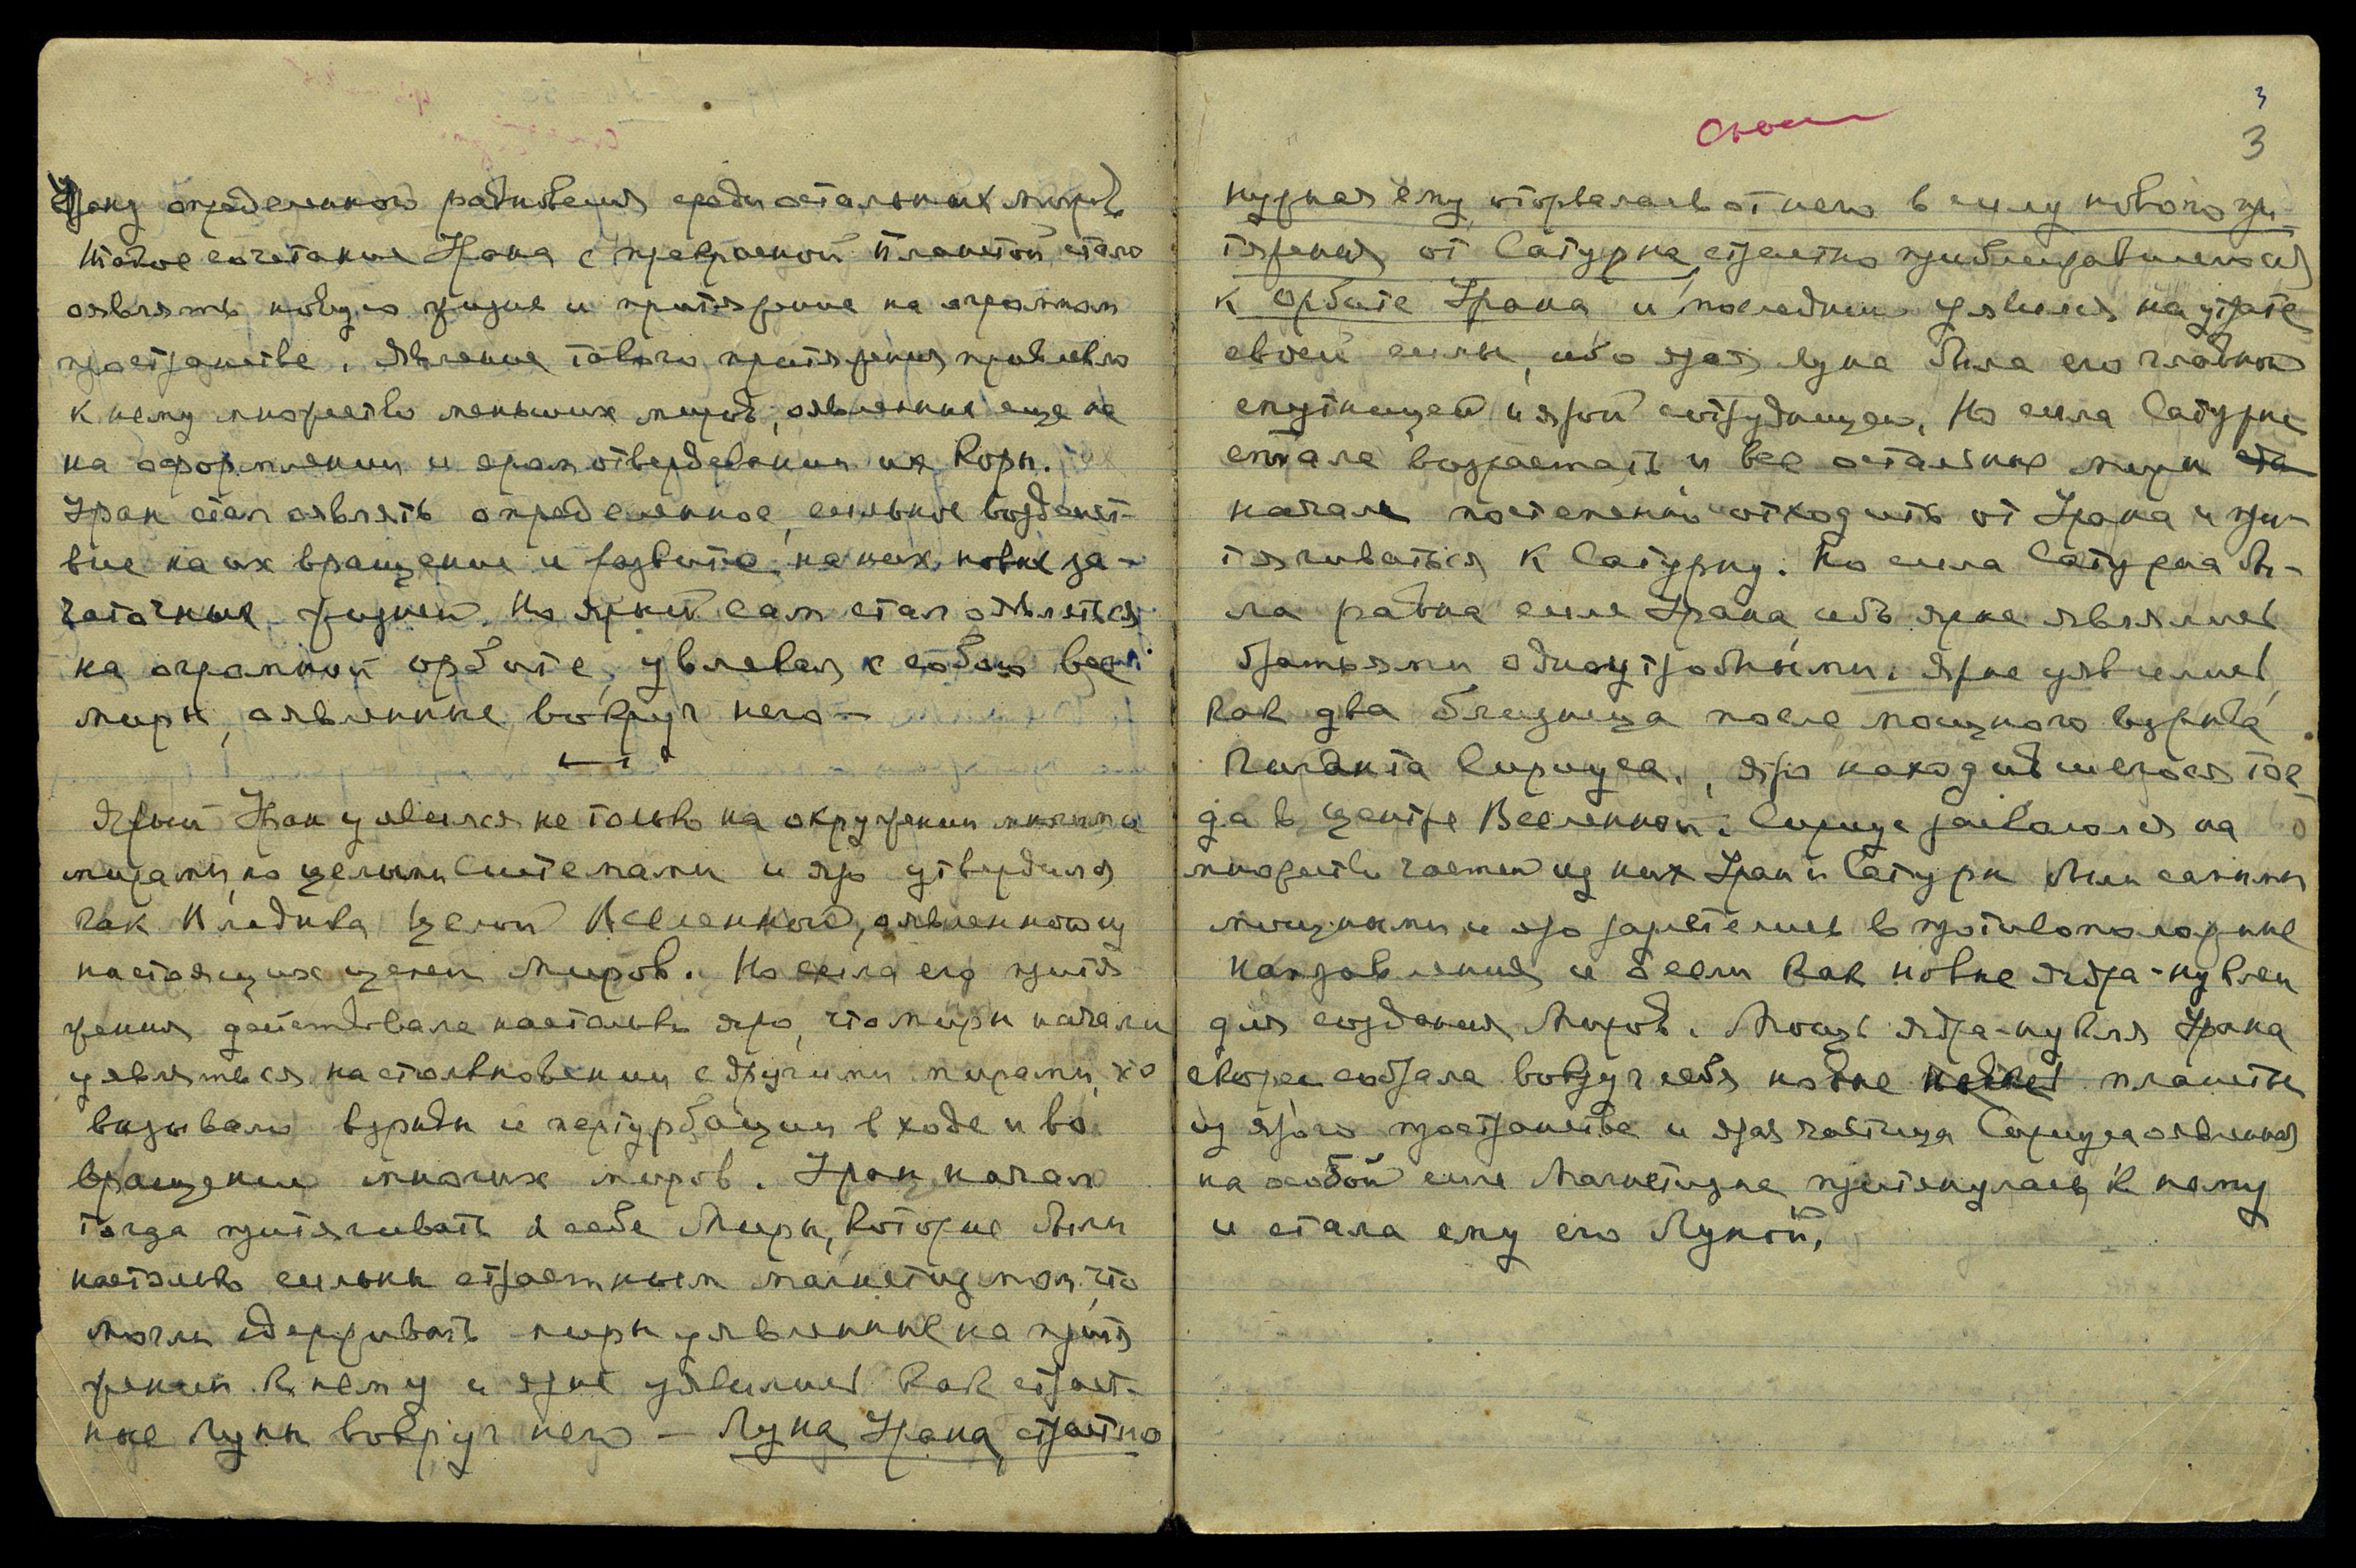 Урану определенного равновесия среди остальных миров
Такое сочетание Урана с прекрасной планетой стало
оявлять новую жизнь и притяжение на огромном
пространстве. Явление такого притяжения привлекло
к нему множество меньших миров, оявленных еще не
на оформлении и яром отвердевании их коры.
Уран стал оявлять определенное, сильное воздейст-
вие на их вращение и развитие на них новых за-
чаточных жизней. Но ярый сам стал оявляться
на огромной орбите, увлекая с собою все
миры, оявленные вокруг него —
Ярый Уран уявился не только на окружении многими
мирами, но целыми системами и яро утвердился
как Владыка целой Вселенной, оявленной из
настоящих цепей Миров. Но сила его притя
жения действовала настолько яро, что миры начали
уявляться на столкновении с другими мирами, что
вызывало взрывы и пертурбации в ходе и во
вращении многих миров. Уран начал
тогда притягивать к себе Миры, которые были
настолько сильны страстным магнетизмом, что
могли сдерживать миры уявленные на притя
жении к нему и ярые уявились как страст-
ные Луны вокруг него — Луна Урана, страстно
3
3
нужная ему, оторвалась от него в силу нового при-
тяжения от Сатурна, страстно приблизившегося
к орбите Урана и последний уявился на утрате
своей силы, ибо ярая Луна была его главной
спутницей и ярой сотрудницей. Но сила Сатурна
стала возрастать и все остальные миры ста
начали постепенно отходить от Урана и при-
тягиваться к Сатурну. Но сила Сатурна бы-
ла равна силе Урана, ибо ярые являлись
братьями одноутробными. Ярые уявились,
как два близнеца после мощного взрыва
Гиганта Сириуса, яро находившегося тог
да в центре Вселенной. Сириус раскололся на
множество частей из них Уран и Сатурн были самыми
мощными и яро разлетелись в противоположные
направления и осели как новые ядра-нуклеи
для создания Миров. Мощь ядра-нуклея Урана
скоро собрала вокруг себя новые новые планеты
из ярого пространства и ярая частица Сириуса оявленная
на особой силе Магнетизма притянулась к нему
и стала ему его Луной.